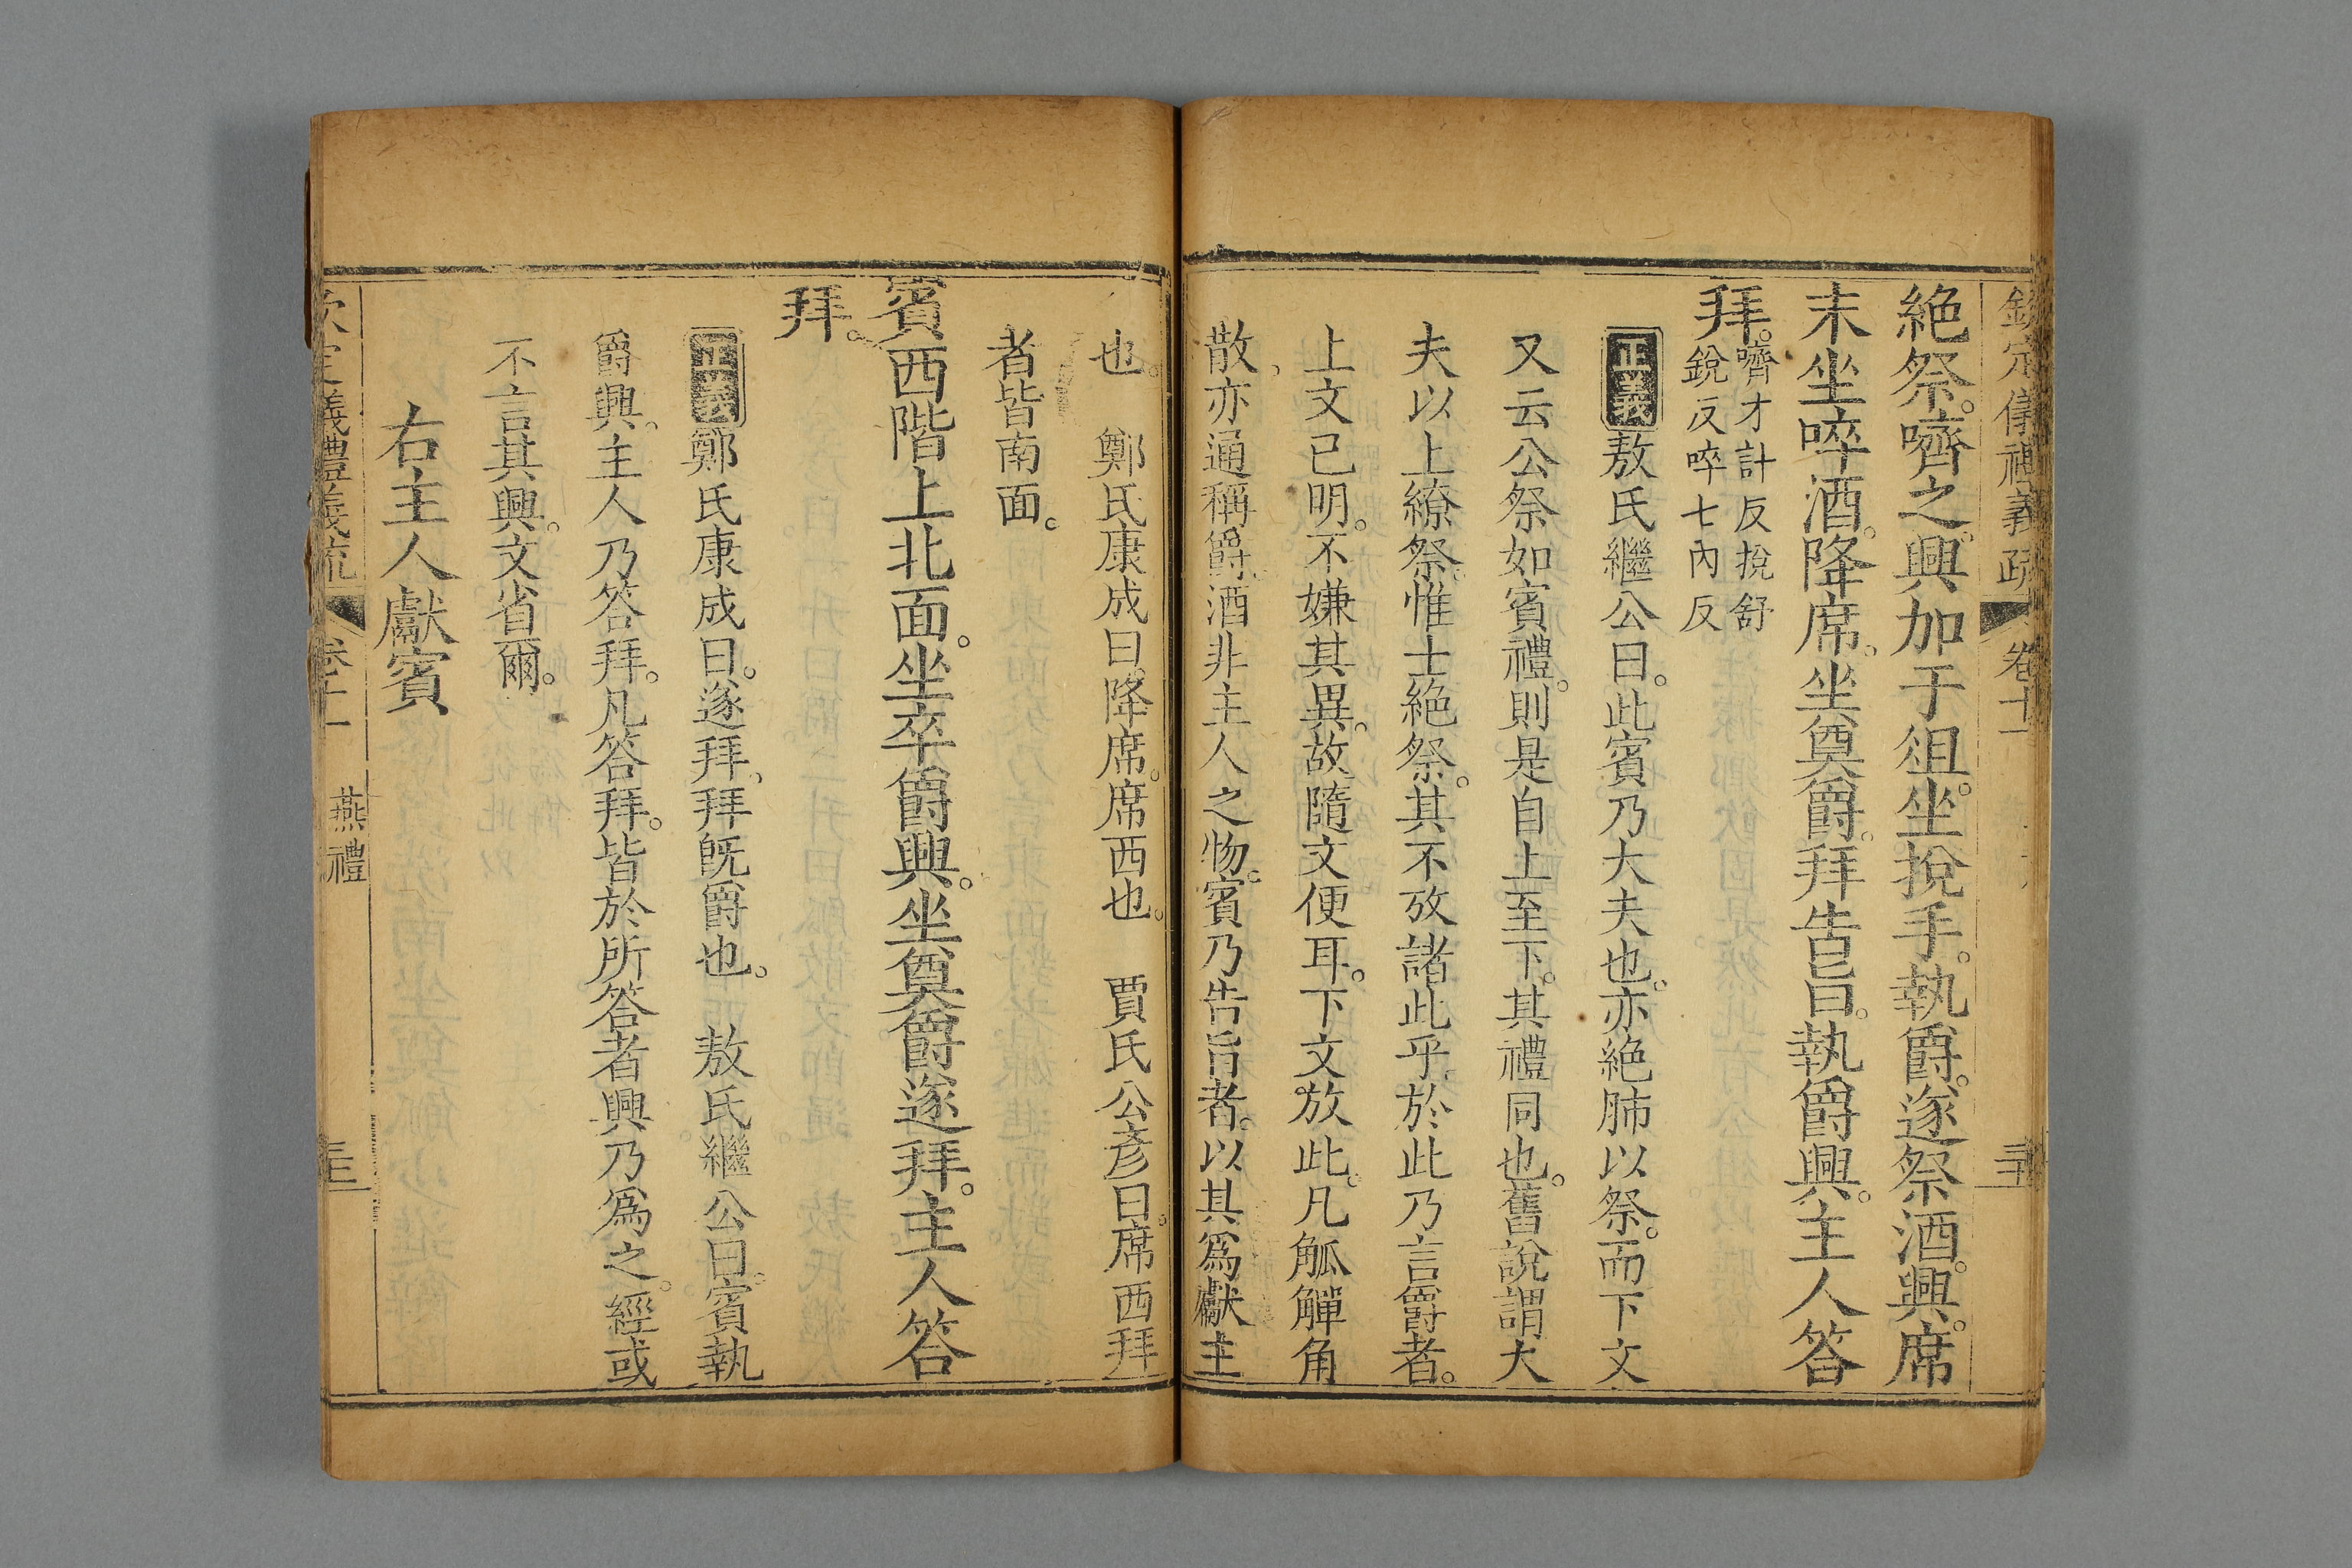 欽定儀禮義疏 卷十一
絶祭。嚌之。興加于俎。坐挩手。執爵。遂祭酒。興。席
末坐啐酒。降席。坐奠爵。拜告旨。執爵興。主人答
拜。嚌才計反挩舒
銳反啐七內反
正義敖氏繼公曰。此賓乃大夫也。亦絶肺以祭。而下文
又云公祭如賓禮。則是自上至下。其禮同也。舊說謂大
夫以上繚祭。惟士絶祭。其不攷諸此乎。於此乃言爵者。
上文已明。不嫌其異。故隨文便耳。下文放此。凡觚觶角
散。亦通稱爵。酒非主人之物。賓乃告旨者。以其爲獻主
也。 鄭氏康成曰。降席。席西也。 賈氏公彥曰。席西拜
者皆南面。
賓西階上北面。坐卒爵興。坐奠爵遂拜。主人答
拜。
正義鄭氏康成曰。遂拜。拜旣爵也。 敖氏繼公曰。賓執
爵興。主人乃答拜。凡答拜。皆於所答者興乃爲之。經或
不言其興。文省爾。
右主人獻賓
欽定儀禮義疏 卷十一 燕禮